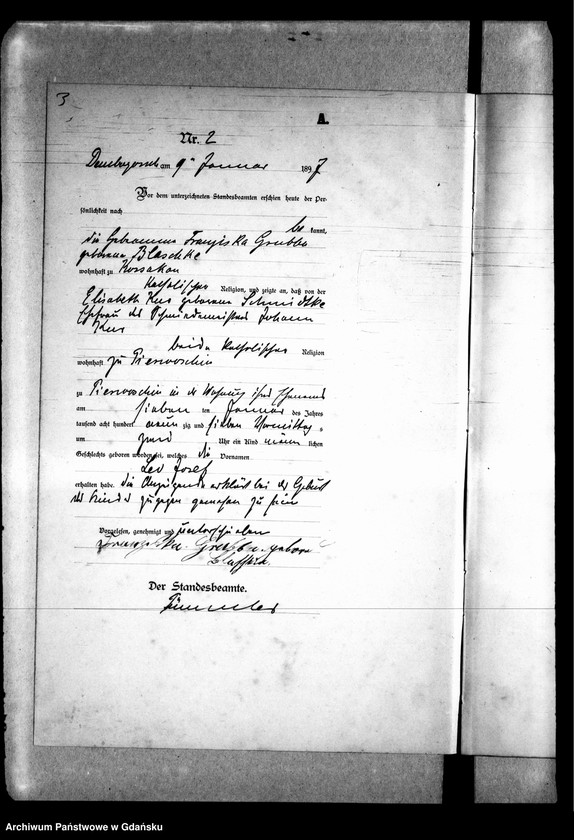 3
A.
Nr. 2
Dembogorsch am 9ten Januar 1897
Vor dem unterzeichneten Standesbeamten erschien heute der Per-
sönlichkeit nach
be kannt,
die Hebamme Franziska Grubba
geborene Blaschke
wohnhaft zu Kossakau
katholischer Religion, und zeigte an, daß von der
Elisabeth Kur geborene Schmidtke
Ehefrau des Johann
Kur
beide katholischer Religion
wohnhaft zu Pierwoschin
zu Pierwoschin in der Wohnung ihres Ehemannes
am sieben ten Januar des Jahres
tausend acht hundert neun zig und sieben Vormittags
um Uhr ein Kind männ lichen
Geschlechts geboren worden sei, welches die Vornamen
Leo Josef
erhalten habe. Die Anzeigende erklärt bei der Geburt
des Kindes zugegen gewesen zu sein
Vorgelesen, genehmigt und unterschrieben
Franziska Grubba geborene
Der Standesbeamte.
Archiwum Państwowe w Gdańsku